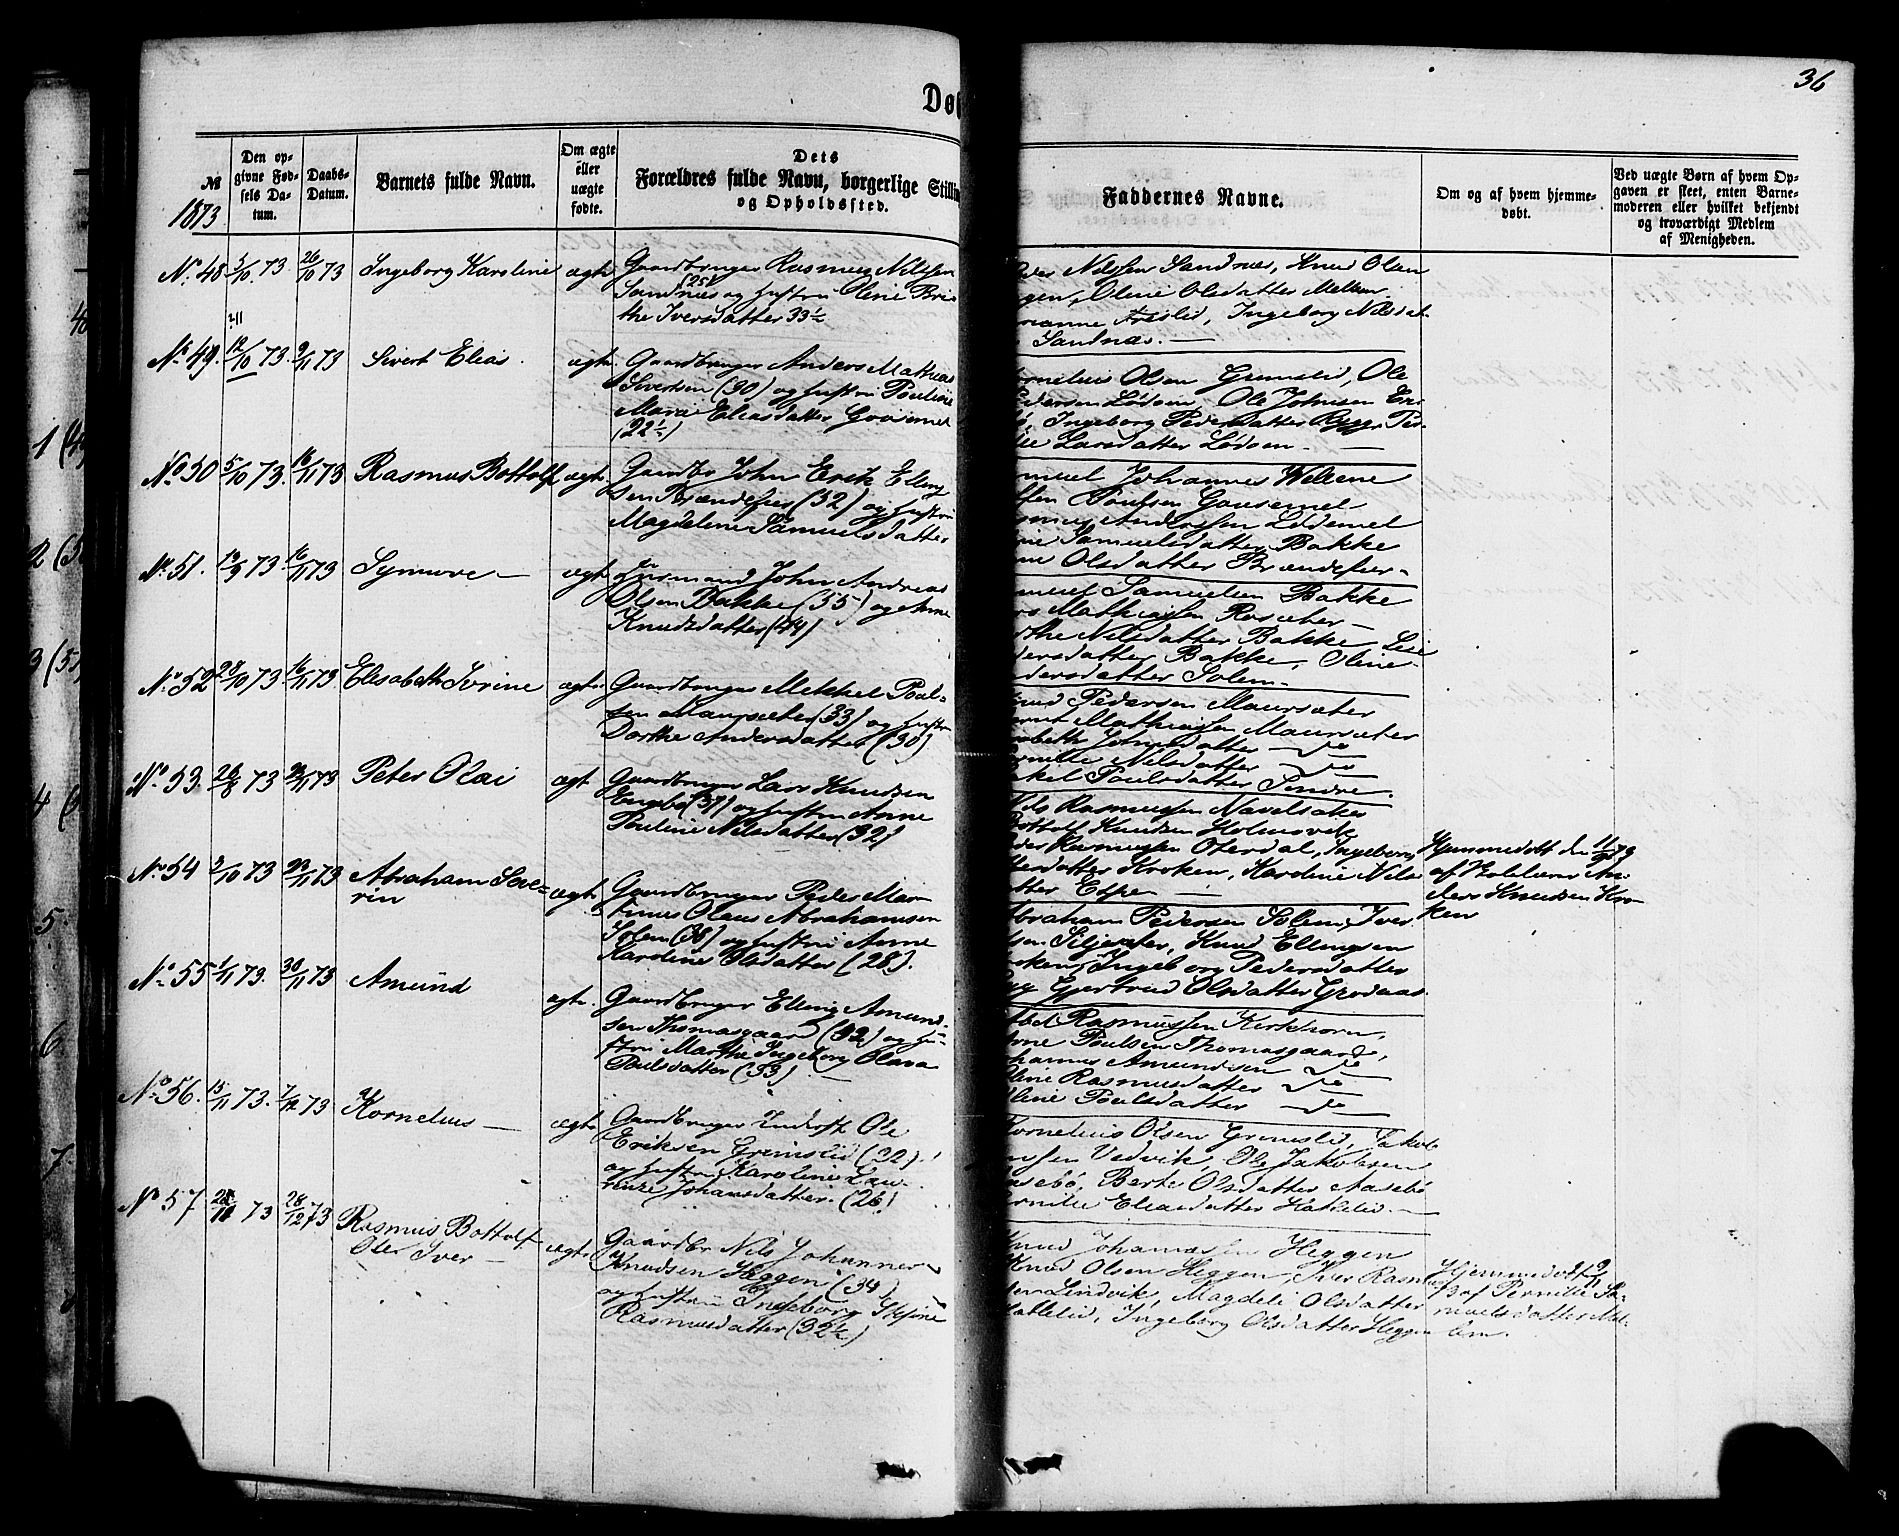 36
Dø
№
1873
Den op-
givne Fød-
sels Da-
tum.
Daabs-
Datum.
Barnets fulde Navn.
Om ægte
eller
uægte
fødte.
Dets
Forældres fulde Navn, borgerlige Stilli
og Opholdssted.
Faddernes Navne.
Om og af hvem hjemme-
døbt.
Ved uægte Børn af hvem Op-
gaven er skeet, enten Barne-
moderen eller hvilket bekjendt
og troværdigt Medlem
af Menigheden.
No 48 5/10 73 26/10 73 Ingeborg Karoline ægte Gaardbruger Rasmus Nilssen
Sandnes (25) og hustru Oline Bri-
the Iversdatter 33½
Nilssen Sandnæs, Knud Olsen
Oline Olsdatter Mellem
Ingeborg Nilsdat
Sandnæs.
No 49. 12/10 73. 9/11 73 Sivert Elias. ægte Gaardbruger Anders Mathias
Sivertsen (30) og hustru Pouline
Marie Eliasdatter Gausemel
(22½)
ornelius Olsen Grimslid, Ole
edersen Lødøen, Ole Johnsen
Ingeborg Pedersdatter Rygg,
Larsdatter Lødøen
No 50 5/10 73. 16/11 73 Rasmus Bottolf ægte. Gaardbr John Erik Elling
sen Brændefur (32) og hustru
Magdelene Samuelsdatter
muel Johannes
Poulsen Gausemel
Anderssen Lødemel
Samuelsdatter Bakke
Olsdatter Brændefur
No 51. 19/9 73 16/11 73 Synnøve ægte Huusmand John Andreas
Olsen Bakke (55) og Anne
Knudsdatter (44)
muel Samuelsen Bakke
Mathiassen Rosæter
the Nilsdatter Bakke, Lise
dersdatter Bakke, Oline
dersdatter Solem
No 52 28/10 73. 16/11 73. Elisabeth Sirine ægte Gaardbruger Mikkel Poul-
sen Maursæter (33) og hustr
Dorthe Andersdatter (30)
nud Pedersen Maursæter
rnt Mathiassen Maursæter
sabeth Johnsdatter do
rnille Nilsdatter do
kel Poulsdatter Sindre.
No 53. 26/8 73 23/11 73 Peter Olai ægte Gaardbruger Lars Knudsen
Engebø (37) og hustru Anne
Pouline Nilsdatter (32)
ils Rasmussen Navelsaker
ottolf Knudsen Holmøvik
der Rasmussen Oterdal, Ingeborg
dersdatter Kroken, Karoline Nils
atter Espen
Hjemmedøbt den
af Kokelærer An-
ders Knudsen Kro-
ken
No 54 2/10 73 23/11 73 Abraham Seve-
rin ægte Gaardbruger Peder Mar
tinus Olaus Abrahamsen
Solem (38) og hustru Anne
Karoline Olsdatter (28).
Abraham Pedersen Solem, Iver
lsen Siljesæter, Knud Ellingsen
roken, Ingeborg Pedersdatter
gg Gjertrud Olsdatter Grodaas
No 55 1/11 73. 30/11 73 Amund ægte. Gaardbruger Elling Amund-
sen Thomasgaard (32) og hu-
stru Marthe Ingeborg Olava
Poulsdatter (33)
Rasmussen Kirkhorn,
rne Poulsen Thomasgaard,
ohannes Amundsen do
Oline Rasmusdatter do
Oline Poulsdatter do
No 56. 15/11 73. 7/12 73 Kornelius ægte Gaardbruger Underof. Ole
Eriksen Grimslid (32)
og hustru Karoline Lau-
rense Johansdatter. (26)
Kornelius Olsen Grimslid, Jakob
nssen Vedvik, Ole Jakobsen
Aasebø, Berte Olsdatter Aasebø
ernille Eliasdatter Hatlelid
No 57 28/11 73 28/12 73 Rasmus Bottolf
Ole Iver ægte Gaardbr Nils Johannes
Knudsen Heggen (34)
og hustru Ingeborg Skjøne
Rasmusdatter (32½)
Knud Johannessen Heggen
Knud Olsen Heggen, Iver Rasmus
sen Lindvik, Magdeli Olsdatter
Hatlelid, Ingeborg Olsdatter Heggen
Hjemmedøbt
af Pernille Sa-
muelsdatter Mel-
lem.